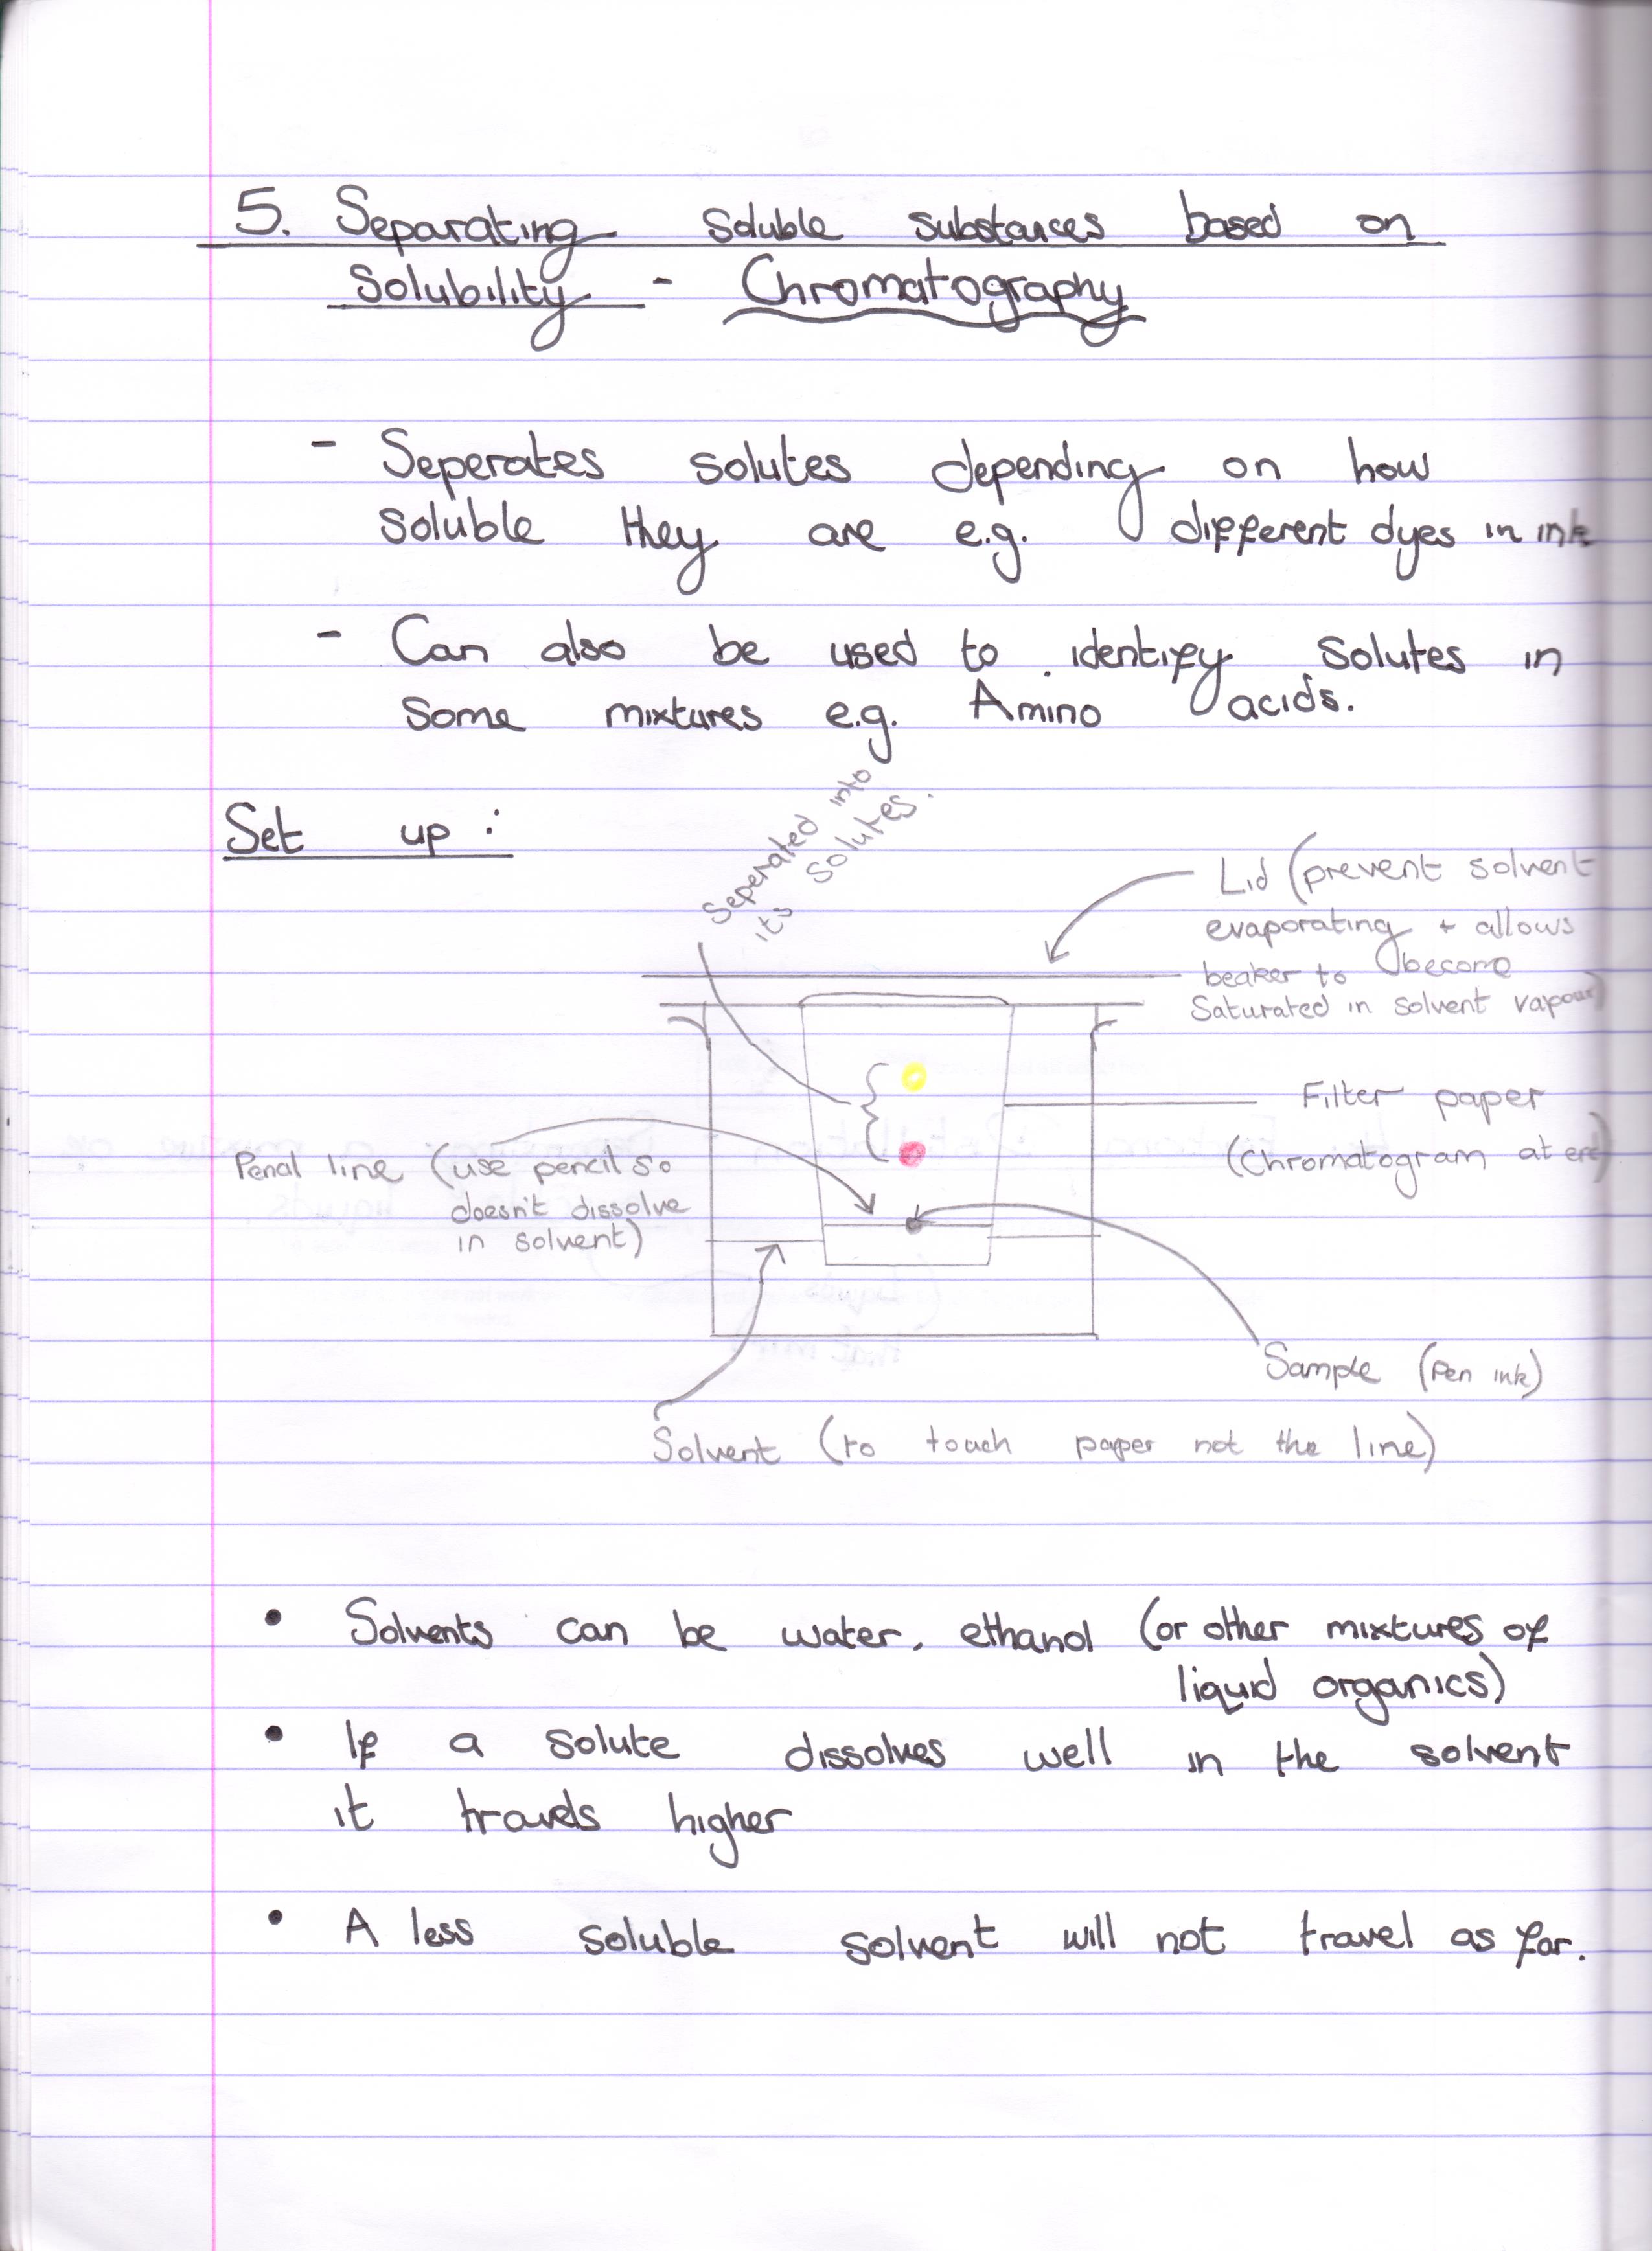 5. Separating soluble substances based on
solubility - Chromatography
- Seperates solutes depending on how
soluble they are e.g. different dyes in ink
- Can also be used to identify solutes in
some mixtures e.g. Amino acids.
Set up :
Seperated into
its solutes.
Lid (prevent solvent
evaporating + allows
beaker to become
Saturated in solvent vapour)
Filter paper
(Chromatogram at end)
Pencil line (use pencil so
doesn't dissolve
in solvent)
Sample (Pen ink)
Solvent (to touch paper not the line)
• Solvents can be water, ethanol (or other mixtures of
liquid organics)
• If a solute dissolves well in the solvent
it travels higher
• A less soluble solvent will not travel as far.